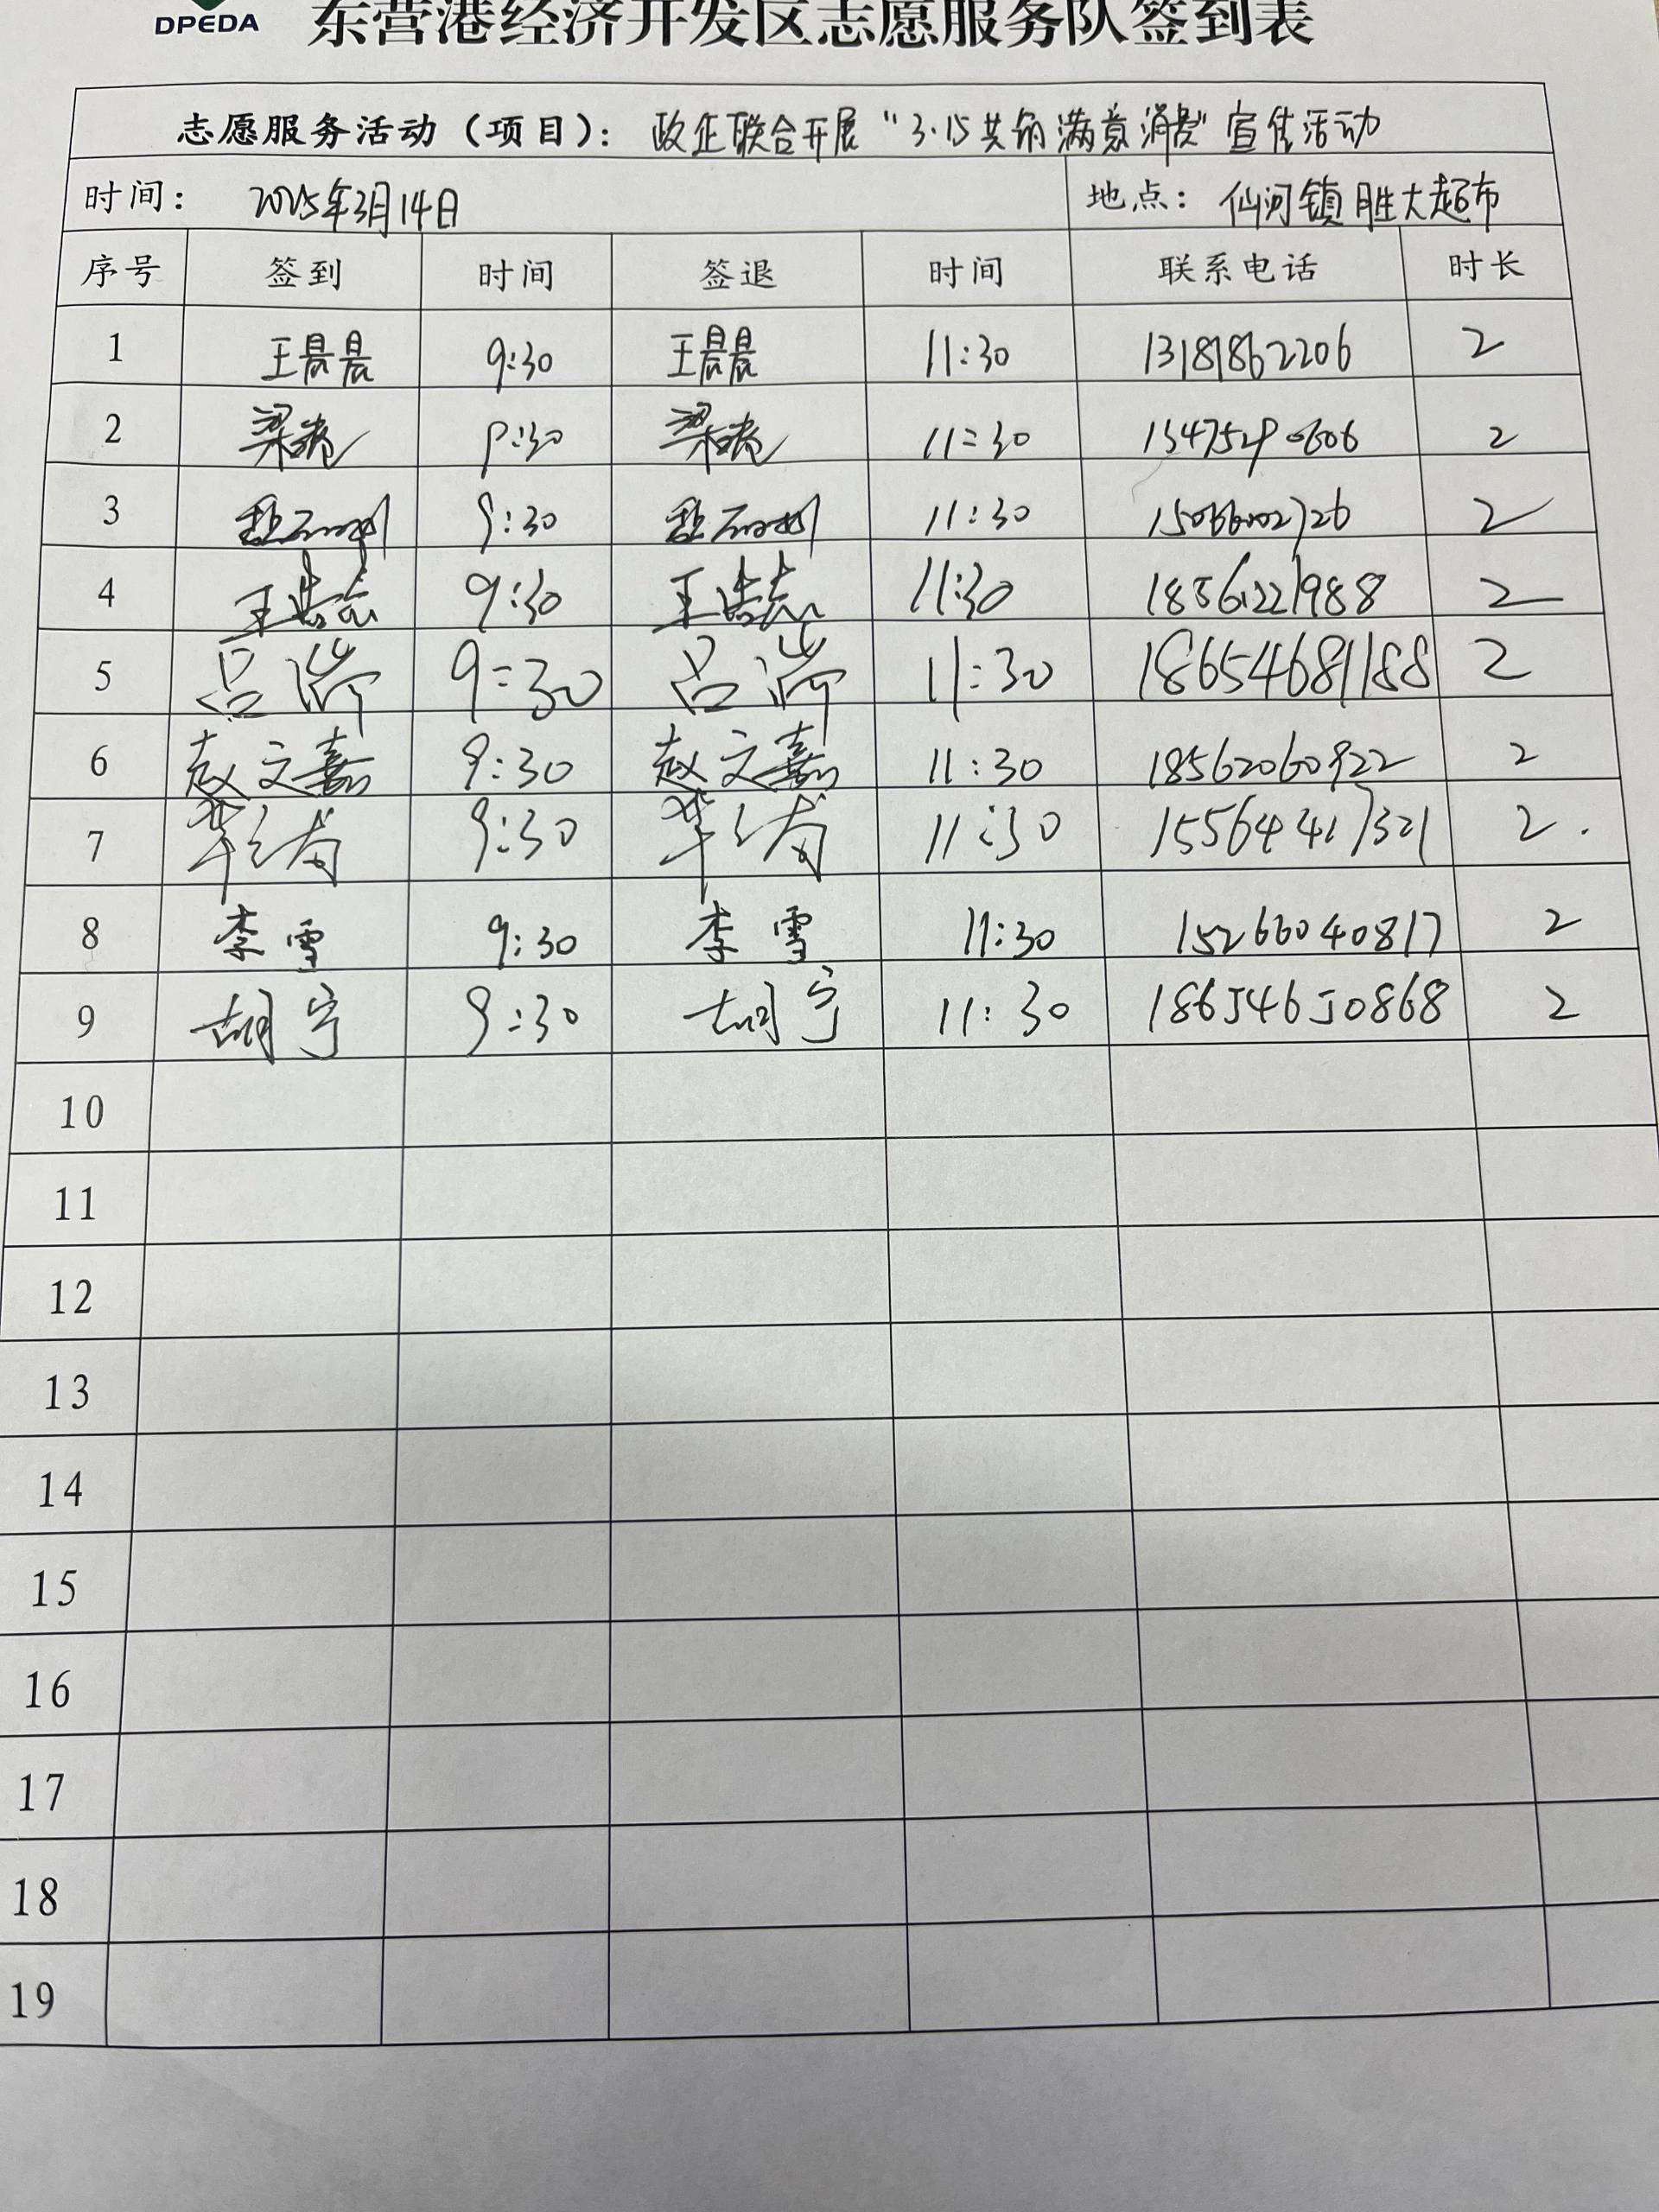 DPEDA 东营港经济开发区志愿服务队签到表
志愿服务活动（项目）： 政企联合开展"3·15共销满意消费"宣传活动
时间： 2025年3月14日 地点： 仙河镇胜大超市
序号 签到 时间 签退 时间 联系电话 时长
1 王晨晨 9:30 王晨晨 11:30 13181862206 2
2 9:30 11:30 13475290606 2
3 9:30 11:30 2
4 9:30 11:30 18561221988 2
5 吕涛 9:30 吕涛 11:30 18654681188 2
6 赵文嘉 9:30 赵文嘉 11:30 18562060922 2
7 9:30 11:30 15564417321 2
8 李雪 9:30 李雪 11:30 15266040817 2
9 胡宁 9:30 胡宁 11:30 18654650868 2
10
11
12
13
14
15
16
17
18
19